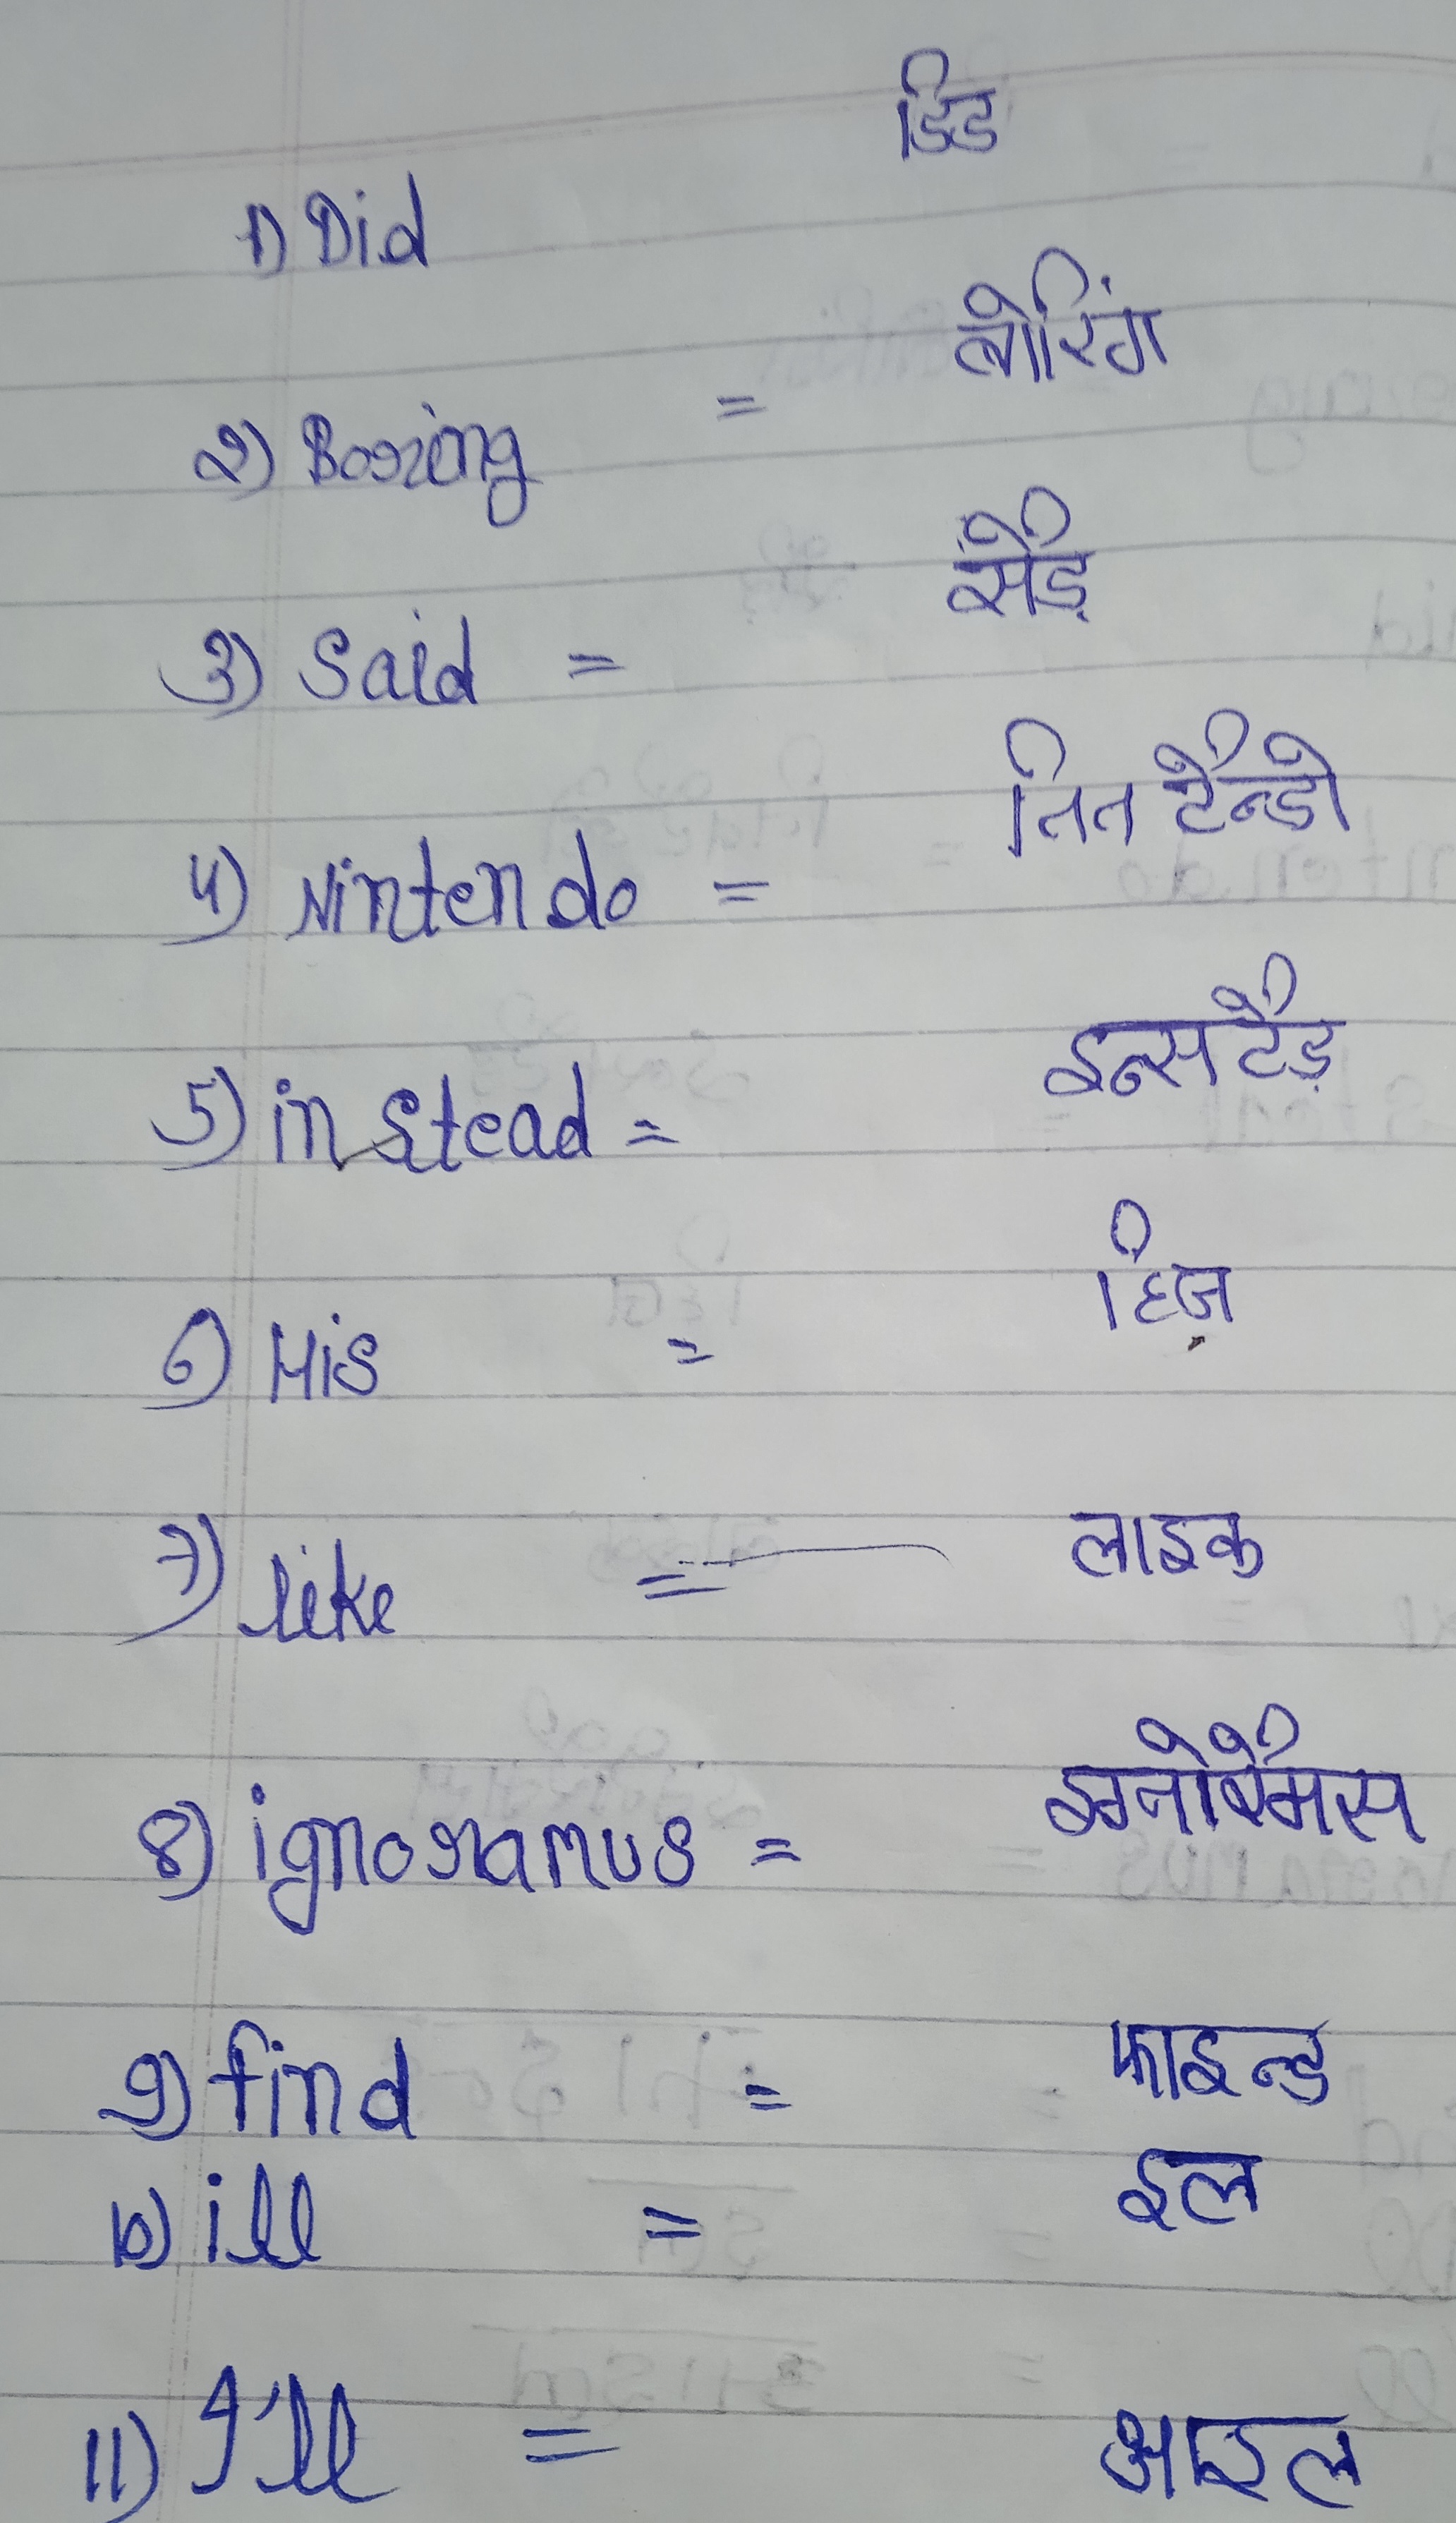 डिड
1) Did
2) Boring = बोरिंग
3) Said = सैड़
4) Nintendo = निन टैन्डो
5) instead = इन्सटैड़
6) His = हिज़
7) like = लाइक
8) ignoramus = इग्नोरैमस
9) find = फाइन्ड
10) ill = इल
11) I'll = आइल